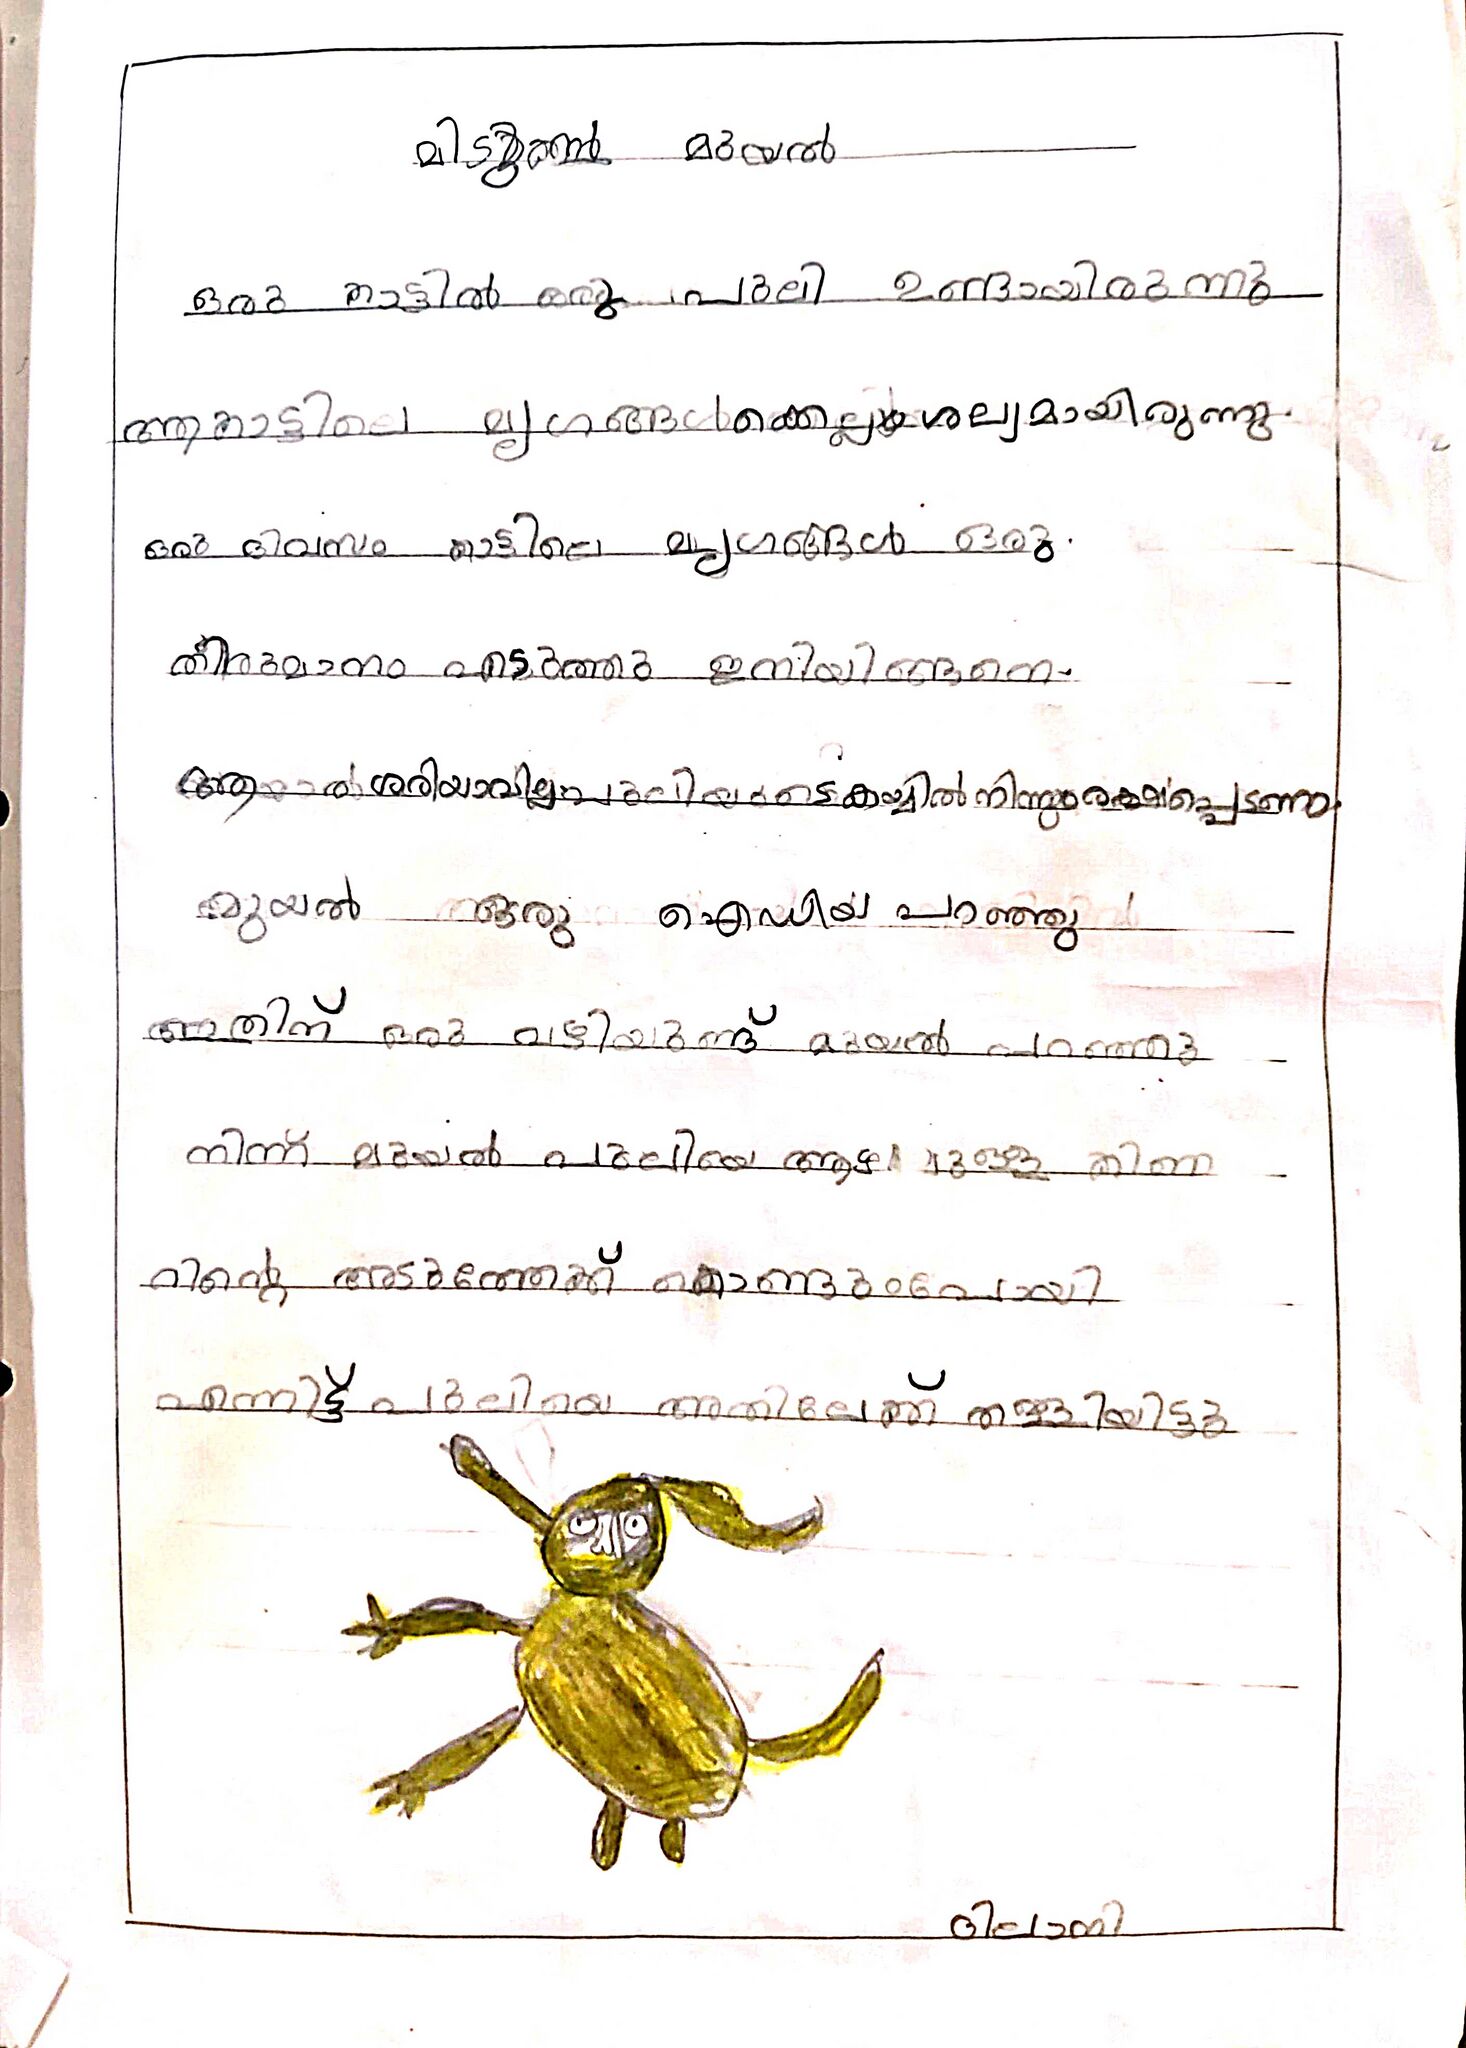 മിടുക്കൻ മുയൽ
ഒരു കാട്ടിൽ ഒരു പുലി ഉണ്ടായിരുന്നു
ആ കാട്ടിലെ മൃഗങ്ങൾക്കെല്ലാം ശല്യമായിരുന്നു.
ഒരു ദിവസം കാട്ടിലെ മൃഗങ്ങൾ ഒരു.
തീരുമാനം എടുത്തു ഇനിയിങ്ങനെ.
ആയാൽ ശരിയാവില്ല പുലിയുടെ കയ്യിൽ നിന്നും രക്ഷപ്പെടണം.
മുയൽ ഒരു ഐഡിയ പറഞ്ഞു
അതിന് ഒരു വഴിയുണ്ട് മുയൽ പറഞ്ഞു
നിന്ന് മുയൽ പുലിയെ ആഴമുള്ള കിണ
റിന്റെ അടുത്തേക്ക് കൊണ്ടുംപോയി
എന്നിട്ട് പുലിയെ അതിലേക്ക് തള്ളിയിട്ടു